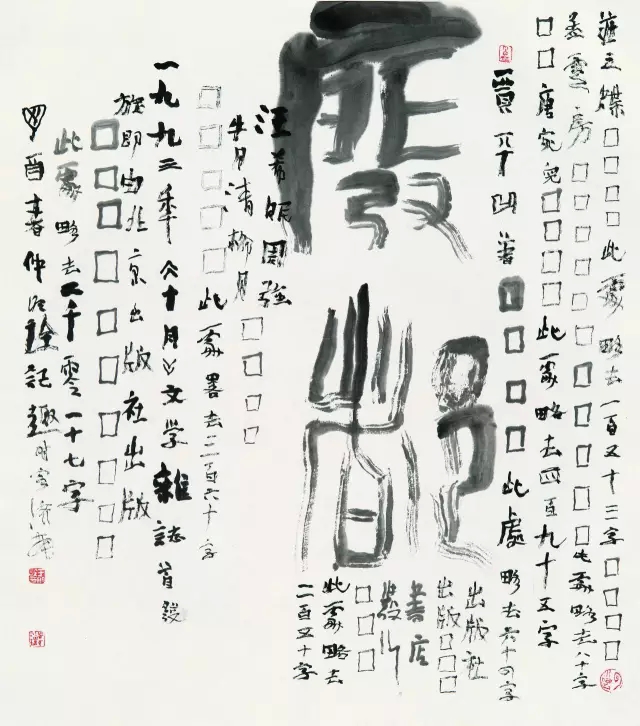 莊之蝶□□□□□此處略去一百五十三字□□□□
孟雲房□□□□□□□□□此處略去八十字
□□唐宛兒□□□□此處略去四百九十五字
賈平凹著□□□□此處略去六十四字
廢都
出版社
出版□□□
書店
發行
□□□
此處略去
二百五十字
汪希眠周
牛月清柳月□□□□
□□□□□此處畧去二百六十字
一九九三年《十月》文學雜誌首發
旋即由北京出版社出版
□□□□□□□□□
此處略去二千零一十七字
酉春仲記趣